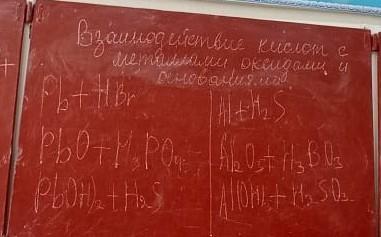 Взаимодействие кислот с
металлами, оксидами и
основаниями
Pb + HBr
PbO + H3PO4
Pb(OH)2 + H2S
Al + H2S
Al2O3 + H3BO3
Al(OH)3 + H2SO3